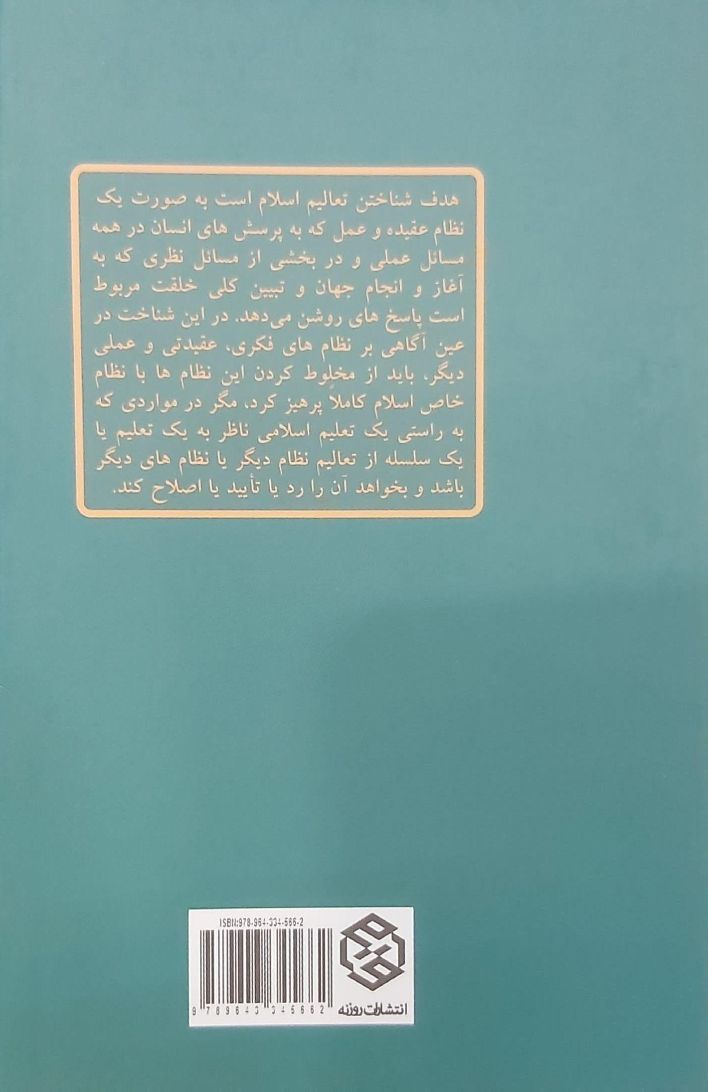 هدف شناختن تعالیم اسلام است به صورت یک
نظام عقیده و عمل که به پرسش های انسان در همه
مسائل عملی و در بخشی از مسائل نظری که به
آغاز و انجام جهان و تبیین کلی خلقت مربوط
است پاسخ های روشن می‌دهد. در این شناخت در
عین آگاهی بر نظام های فکری، عقیدتی و عملی
دیگر، باید از مخلوط کردن این نظام ها با نظام
خاص اسلام کاملاً پرهیز کرد، مگر در مواردی که
به راستی یک تعلیم اسلامی ناظر به یک تعلیم یا
یک سلسله از تعالیم نظام دیگر یا نظام های دیگر
باشد و بخواهد آن را رد یا تأیید یا اصلاح کند.
ISBN:978-964-334-566-2
9 789643 345662
انتشارات روزنه